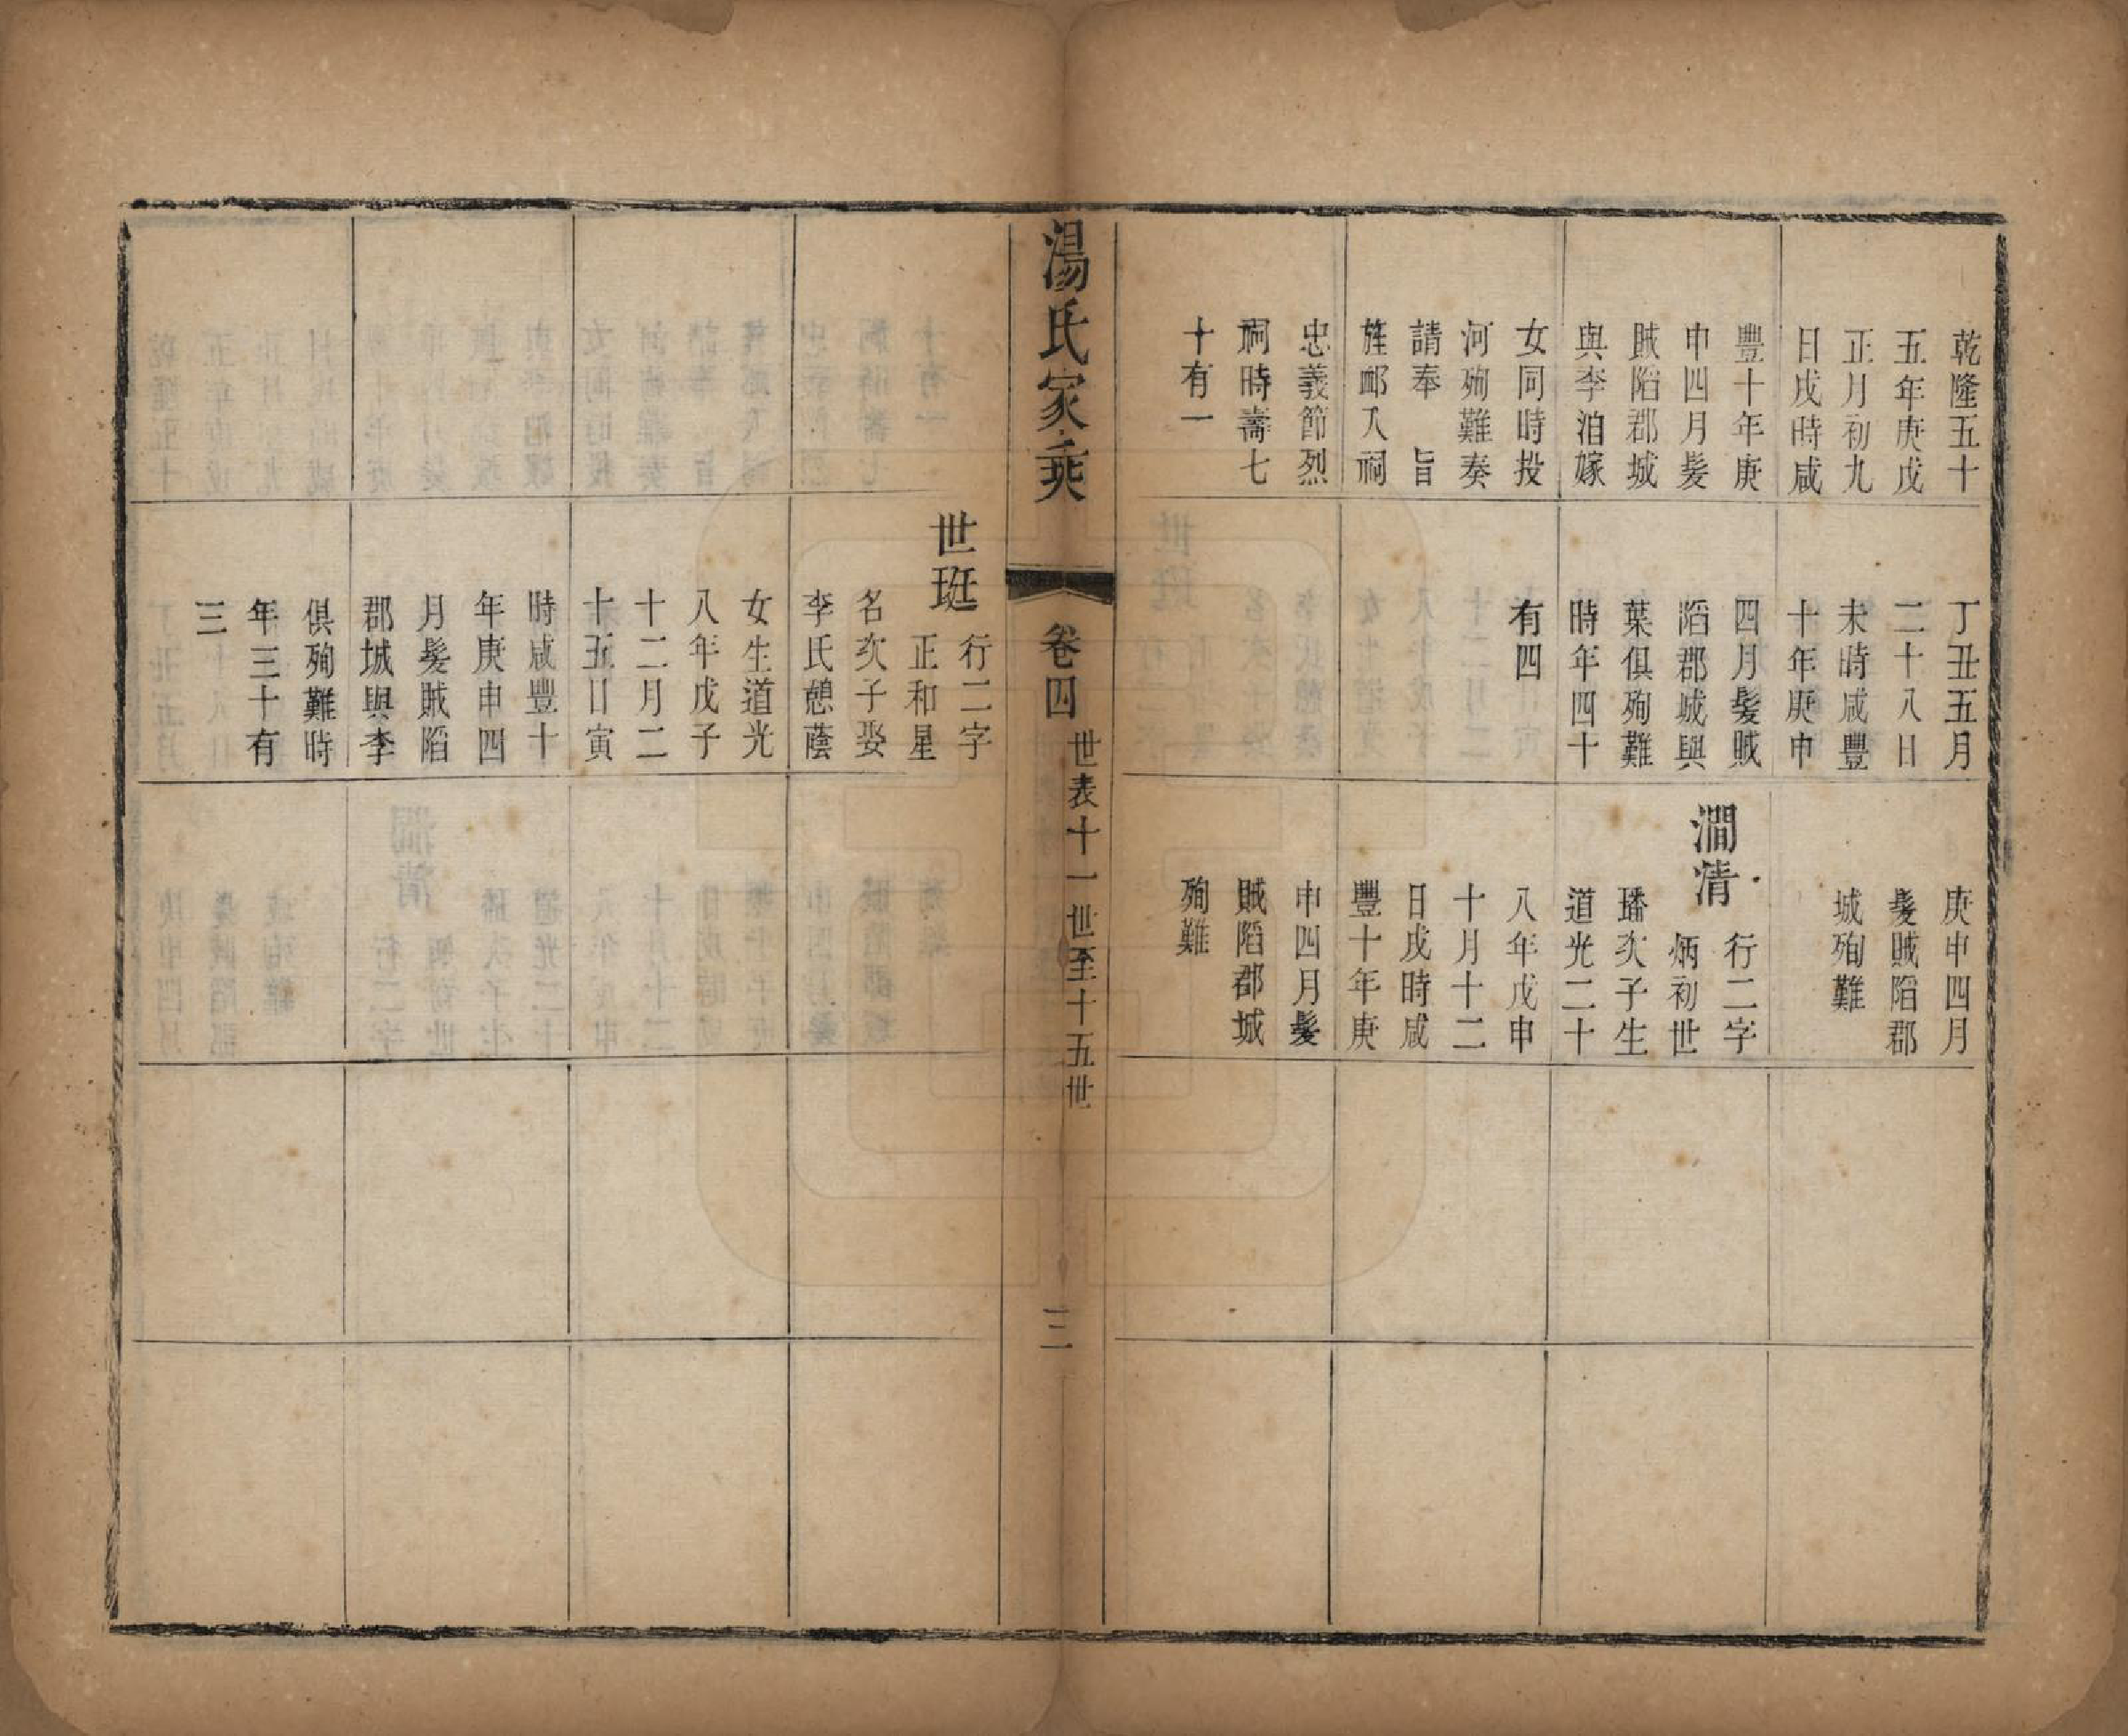 乾隆五十
五年庚戌
正月初九
日戌時咸
豐十年庚
申四月髮
賊陷郡城
與李洎嫁
女同時投
河殉難奏
請奉　旨
旌卹入祠
忠義節烈
祠時壽七
十有一
丁丑五月
二十八日
未時咸豐
十年庚申
四月髮賊
陷郡城與
葉俱殉難
時年四十
有四
庚申四月
髮賊陷郡
城殉難
澗清
行二字
炳初世
璠次子生
道光二十
八年戊申
十月十二
日戌時咸
豐十年庚
申四月髮
賊陷郡城
殉難
湯氏家乘
卷四
世表十一世至十五世
三
世珽
行二字
正和星
名次子娶
李氏憩蔭
女生道光
八年戊子
十二月二
十五日寅
時咸豐十
年庚申四
月髮賊陷
郡城與李
俱殉難時
年三十有
三